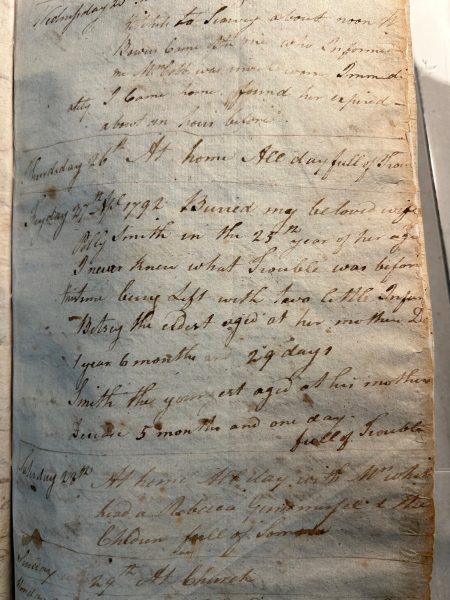 Wednesday 25
to about noon
Bowers Came with me who Informed
me Mrs Cobb was much worse Immedi
ately I Came home found her expired
about an hour before
Thursday 26th At home All day full of Trou
Fryday 27th 1792 Buried my beloved wife
Polly Smith in the 25th year of her age
I never knew what Trouble was before
this time being Left with two little Infan
Betsey the eldest aged at her mothers De
1 year 6 months and 29 days
Smith the youngest aged at his mothers
Decease 5 months and one day.
full of Trouble
Saturday 28th At home All day with Mr
head & Rebecca & the
Children full of Sorrow
Sunday 29th At Church